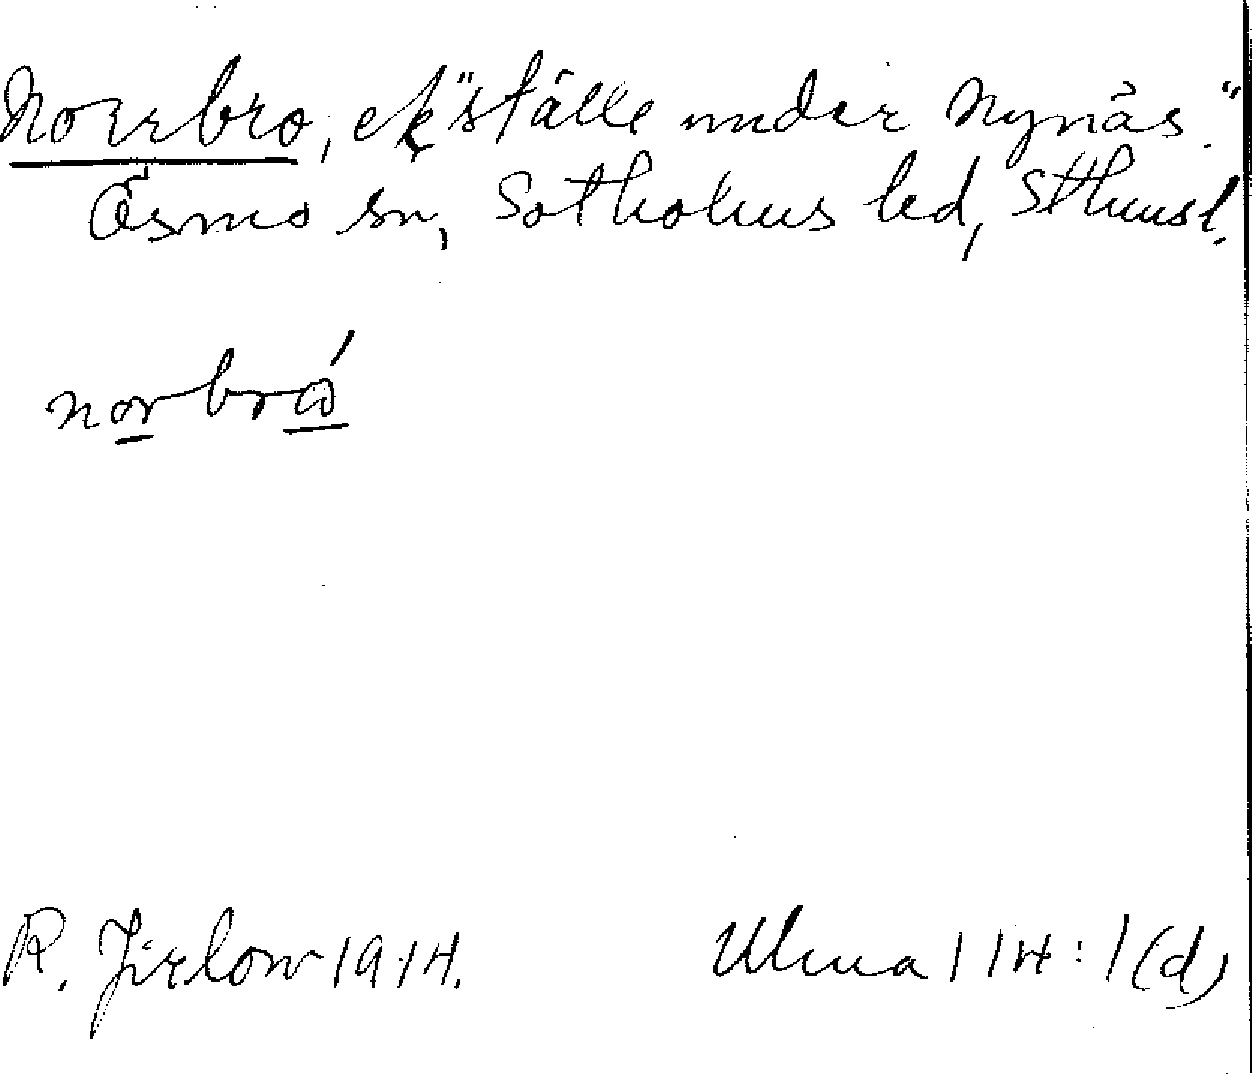 Norrbro, ek "ställe under Nynäs."
Ösmo sn, Sotholms hd, Sthmsl.
norbró
R. Jirlow 1914.
Ulma 114:1(d)